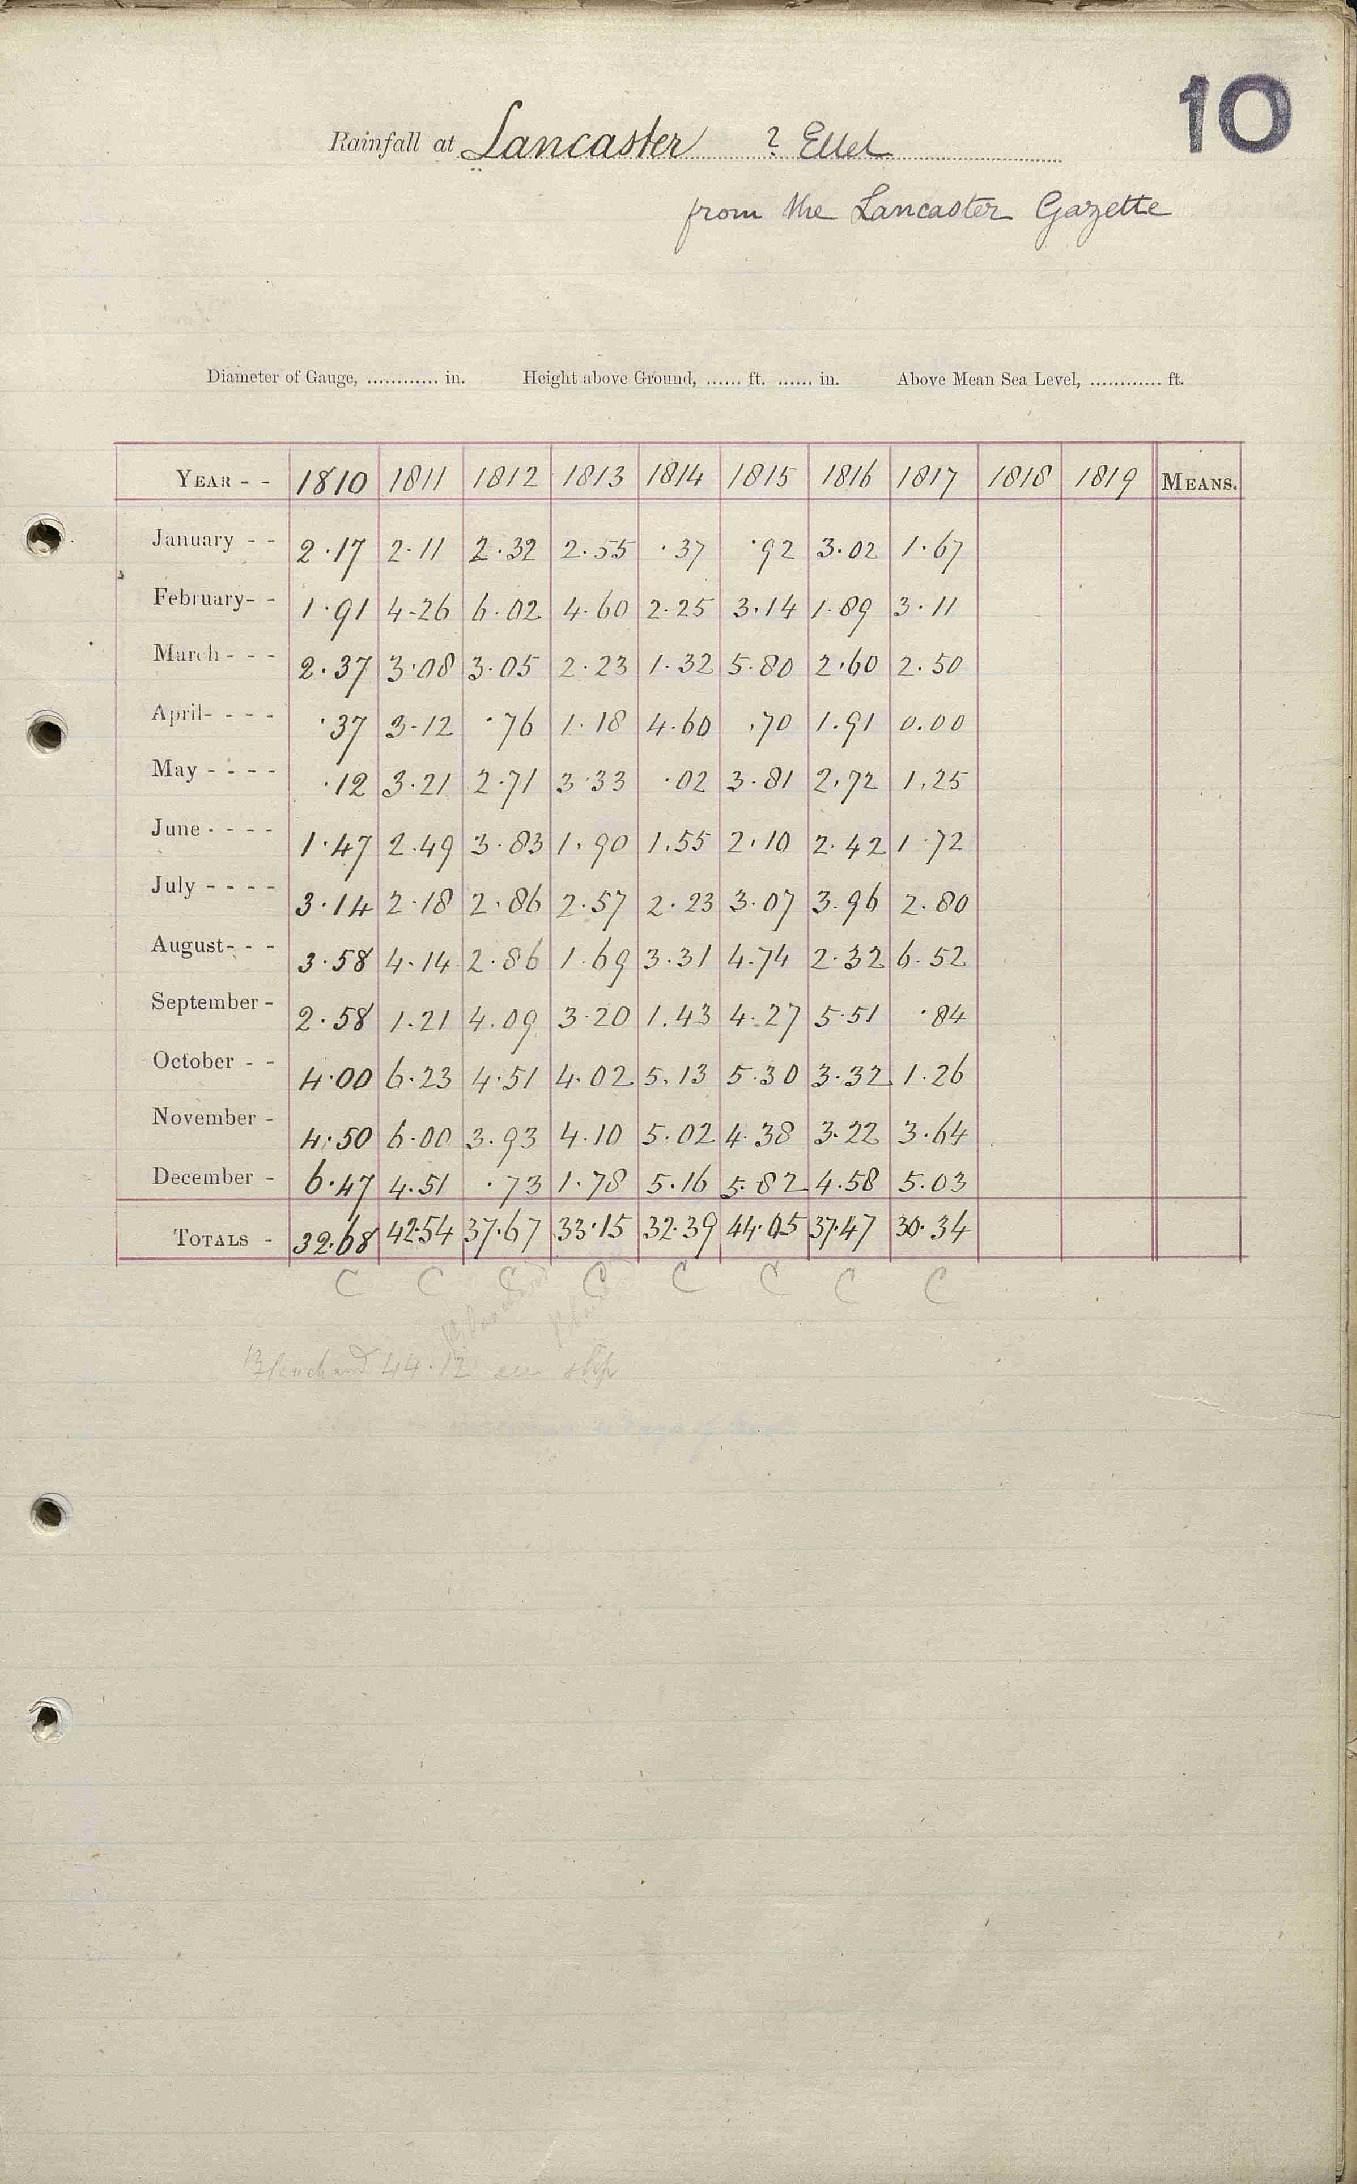 10
Rainfall at Lancaster ? Ellel
from the Lancaster Gazette
Diameter of Gauge, ............ in. Height above Ground, ...... ft. ...... in. Above Mean Sea Level, ............ ft.
YEAR - - 1810 1811 1812 1813 1814 1815 1816 1817 1818 1819 MEANS.
January - - 2.17 2.11 2.32 2.55 .37 .92 3.02 1.67
February- - 1.91 4.26 6.02 4.60 2.25 3.14 1.89 3.11
March - - - 2.37 3.08 3.05 2.23 1.32 5.80 2.60 2.50
April- - - - .37 3.12 .76 1.18 4.60 .70 1.91 0.00
May - - - - .12 3.21 2.71 3.33 .02 3.81 2.72 1.25
June - - - - 1.47 2.49 3.83 1.90 1.55 2.10 2.42 1.72
July - - - - 3.14 2.18 2.86 2.57 2.23 3.07 3.96 2.80
August- - - 3.58 4.14 2.86 1.69 3.31 4.74 2.32 6.52
September - 2.58 1.21 4.09 3.20 1.43 4.27 5.51 .84
October - - 4.00 6.23 4.51 4.02 5.13 5.30 3.32 1.26
November - 4.50 6.00 3.93 4.10 5.02 4.38 3.22 3.64
December - 6.47 4.51 .73 1.78 5.16 5.82 4.58 5.03
TOTALS - 32.68 42.54 37.67 33.15 32.39 44.05 37.47 30.34
C C C C C C C C
Blanchard 44.12 see slip